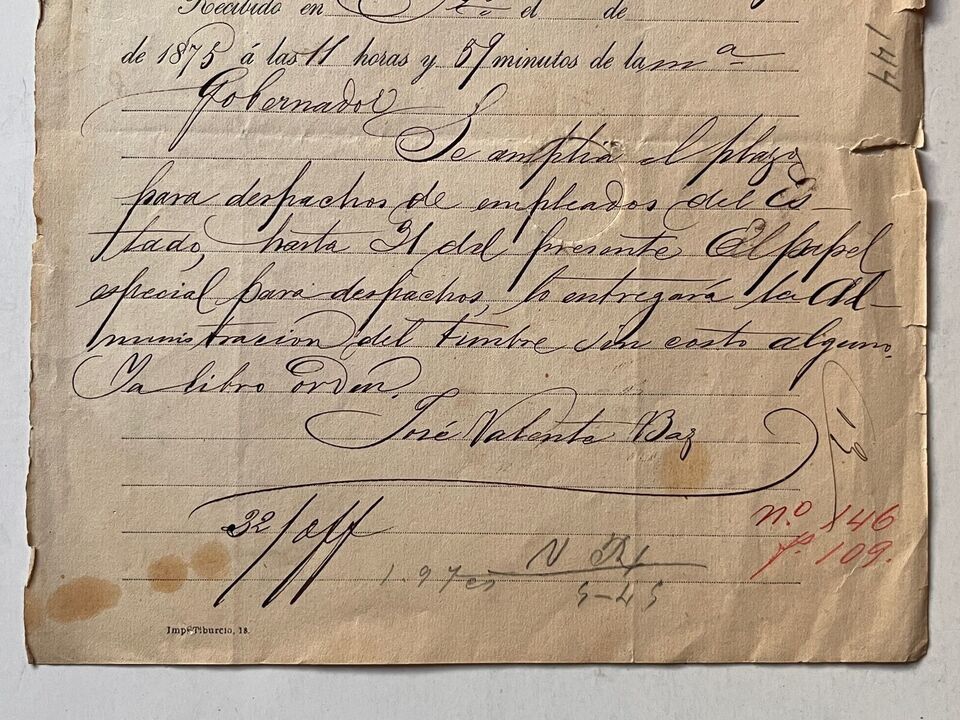 Recibido en el de
de 1875 á las 11 horas y 59 minutos de la m a
Gobernador
Se amplia el plazo
para despachos de empleados del Es-
tado, hasta 31 del presente El papel
especial para despachos, lo entregará la Ad-
ministracion del timbre sin costo alguno.
Ya libro órden.
José Valente Baz
32/off
n.o 146
f. 109.
1.97 cs
5-45
144
Imp. Tiburcio, 18.